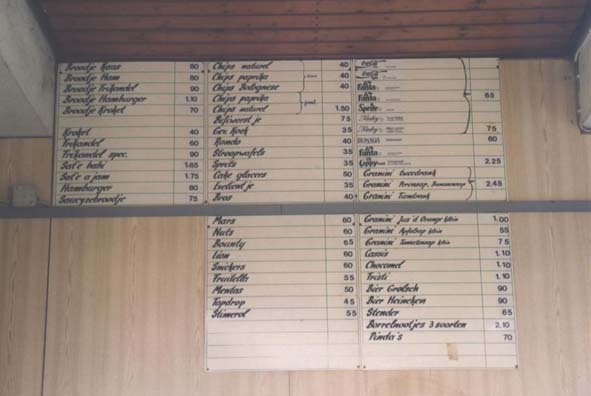 Broodje Kaas 80
Broodje Ham 80
Broodje Frikandel 90
Broodje Hamburger 1.10
Broodje Kroket 70
Kroket 40
Frikandel 60
Frikandel spec. 90
Sat'e babi 1.65
Sat'e ajam 1.75
Hamburger 80
Saucyzebroodje 75
Chips naturel 40
Chips paprika 40
Chips Bolognese 40
Chips paprika
Chips naturel 1.50
Bifiworstje 75
Gev. Koek 35
Ronda 40
Stroopwafels 35
Sprits 35
Cake glacees 50
Evelientje 35
Bros 40
Fanta
Fanta 65
Sprite
75
60
Fanta
2.25
Granini
Granini Perensap, Bananensap 2.45
Granini
Mars 60
Nuts 60
Bounty 65
Lion 60
Snickers 60
Fruitella 55
Mentos 50
Topdrop 45
Stimorol 55
Granini Jus'd Orange klein 1.00
Granini Appelsap klein 55
Granini Tomatensap klein 75
Cassis 1.10
Chocomel 1.10
Fristi 1.10
Bier Grolsch 90
Bier Heineken 90
Stender 65
Borrelnootjes 3 soorten 2.10
Pinda's 70